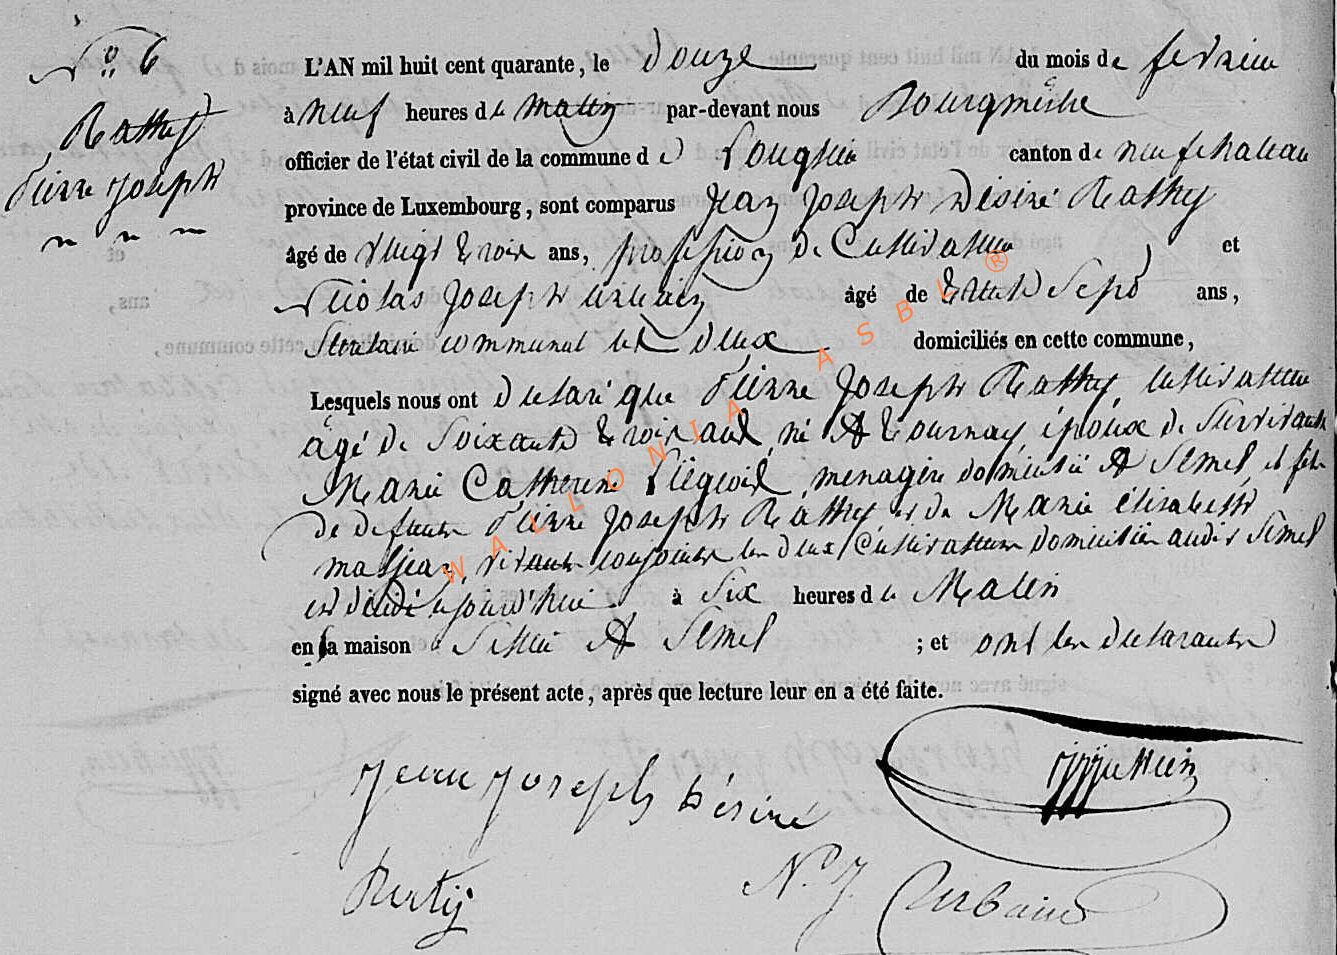 N° 6
Rathy
Pierre Joseph
L'AN mil huit cent quarante, le Douze du mois de fevrier
à Neuf heures du Matin par-devant nous Bourgmestre
officier de l'état civil de la commune de Longlier canton de neufchateau
province de Luxembourg, sont comparus Jean Joseph Désiré Rathy
âgé de Vingt trois ans, profession de Cultivateur, et
Nicolas Joseph Urbain âgé de trente Sept ans,
Secretaire communal les deux domiciliés en cette commune,
Lesquels nous ont déclaré que Pierre Joseph Rathy, cultivateur
âgé de Soixante trois ans, né A tournay, époux de Survivante
Marie Catherine Liégeois, menagère domiciliée A Semel, et fils
de defunts Pierre Joseph Rathy et de Marie élisabeth
masjean, vivants conjoints les deux Cultivateurs domiciliés audit Semel
est décédé aujourd'hui à Six heures du Matin
en sa maison Sittuée A Semel ; et ont les declarants
signé avec nous le présent acte, après que lecture leur en a été faite.
Jean Joseph Désiré
N. J. Urbain
WALLONIA ASBL ®